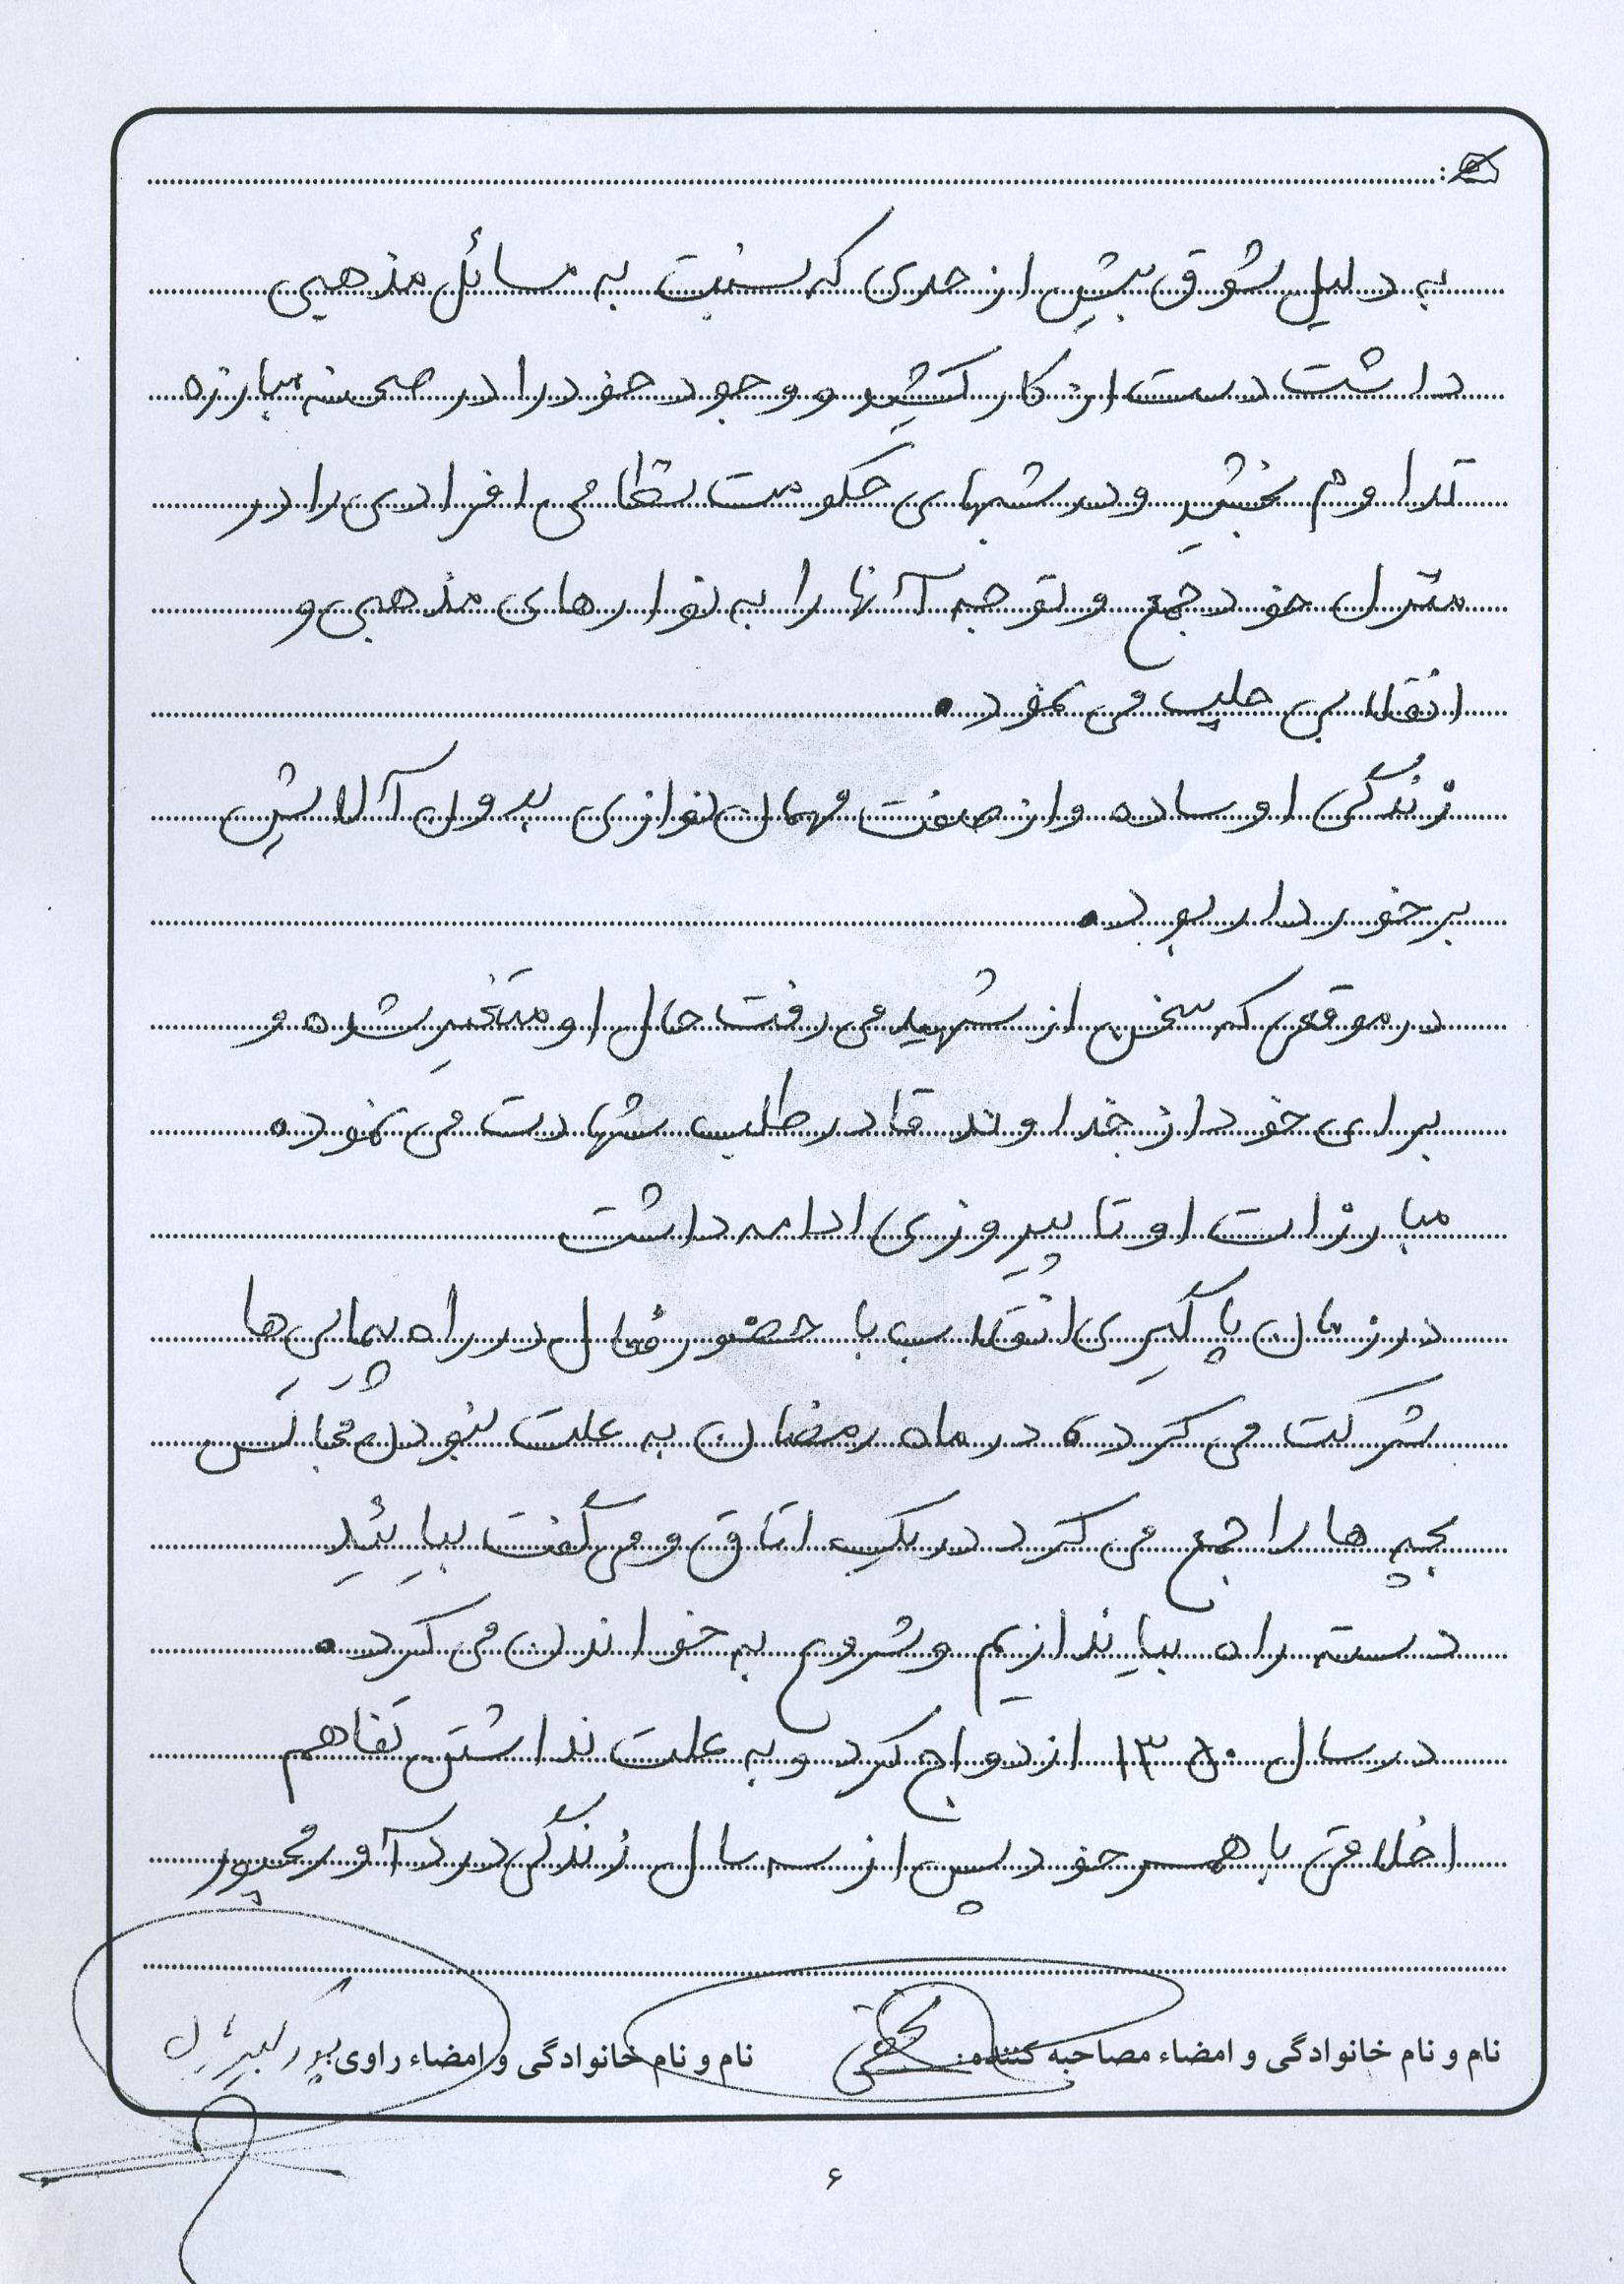 به دلیل شوق بیش از حدی که نسبت به مسائل مذهبی
داشت دست از کار کشید و وجود خود را در صحنه مبارزه
تداوم بخشید و در شبهای حکومت نظامی افرادی را در
منزل خود جمع و توجه آنها را به نوارهای مذهبی و
انقلابی جلب می نمود.
زندگی او ساده و از صفت مهمان نوازی بدون آلایش
برخوردار بود.
در موقعی که سخن از شهید می رفت حال او متغیر شده و
برای خود از خداوند قادر طلب شهادت می نمود.
مبارزات او تا پیروزی ادامه داشت
در زمان پاگیری انقلاب با حضور فعال در راه پیمایی ها
شرکت می کرد. در ماه رمضان به علت نبودن مجالس
بچه ها را جمع می کرد در یک اتاق و می گفت بیایئید
دسته راه بیاندازیم و شروع به خواندن می کرد.
در سال ۱۳۵۰ ازدواج کرد و به علت نداشتن تفاهم
اخلاقی با همسر خود پس از سه سال زندگی درد آور مجبور
نام و نام خانوادگی و امضاء مصاحبه کننده:
نام و نام خانوادگی و امضاء راوی
۶